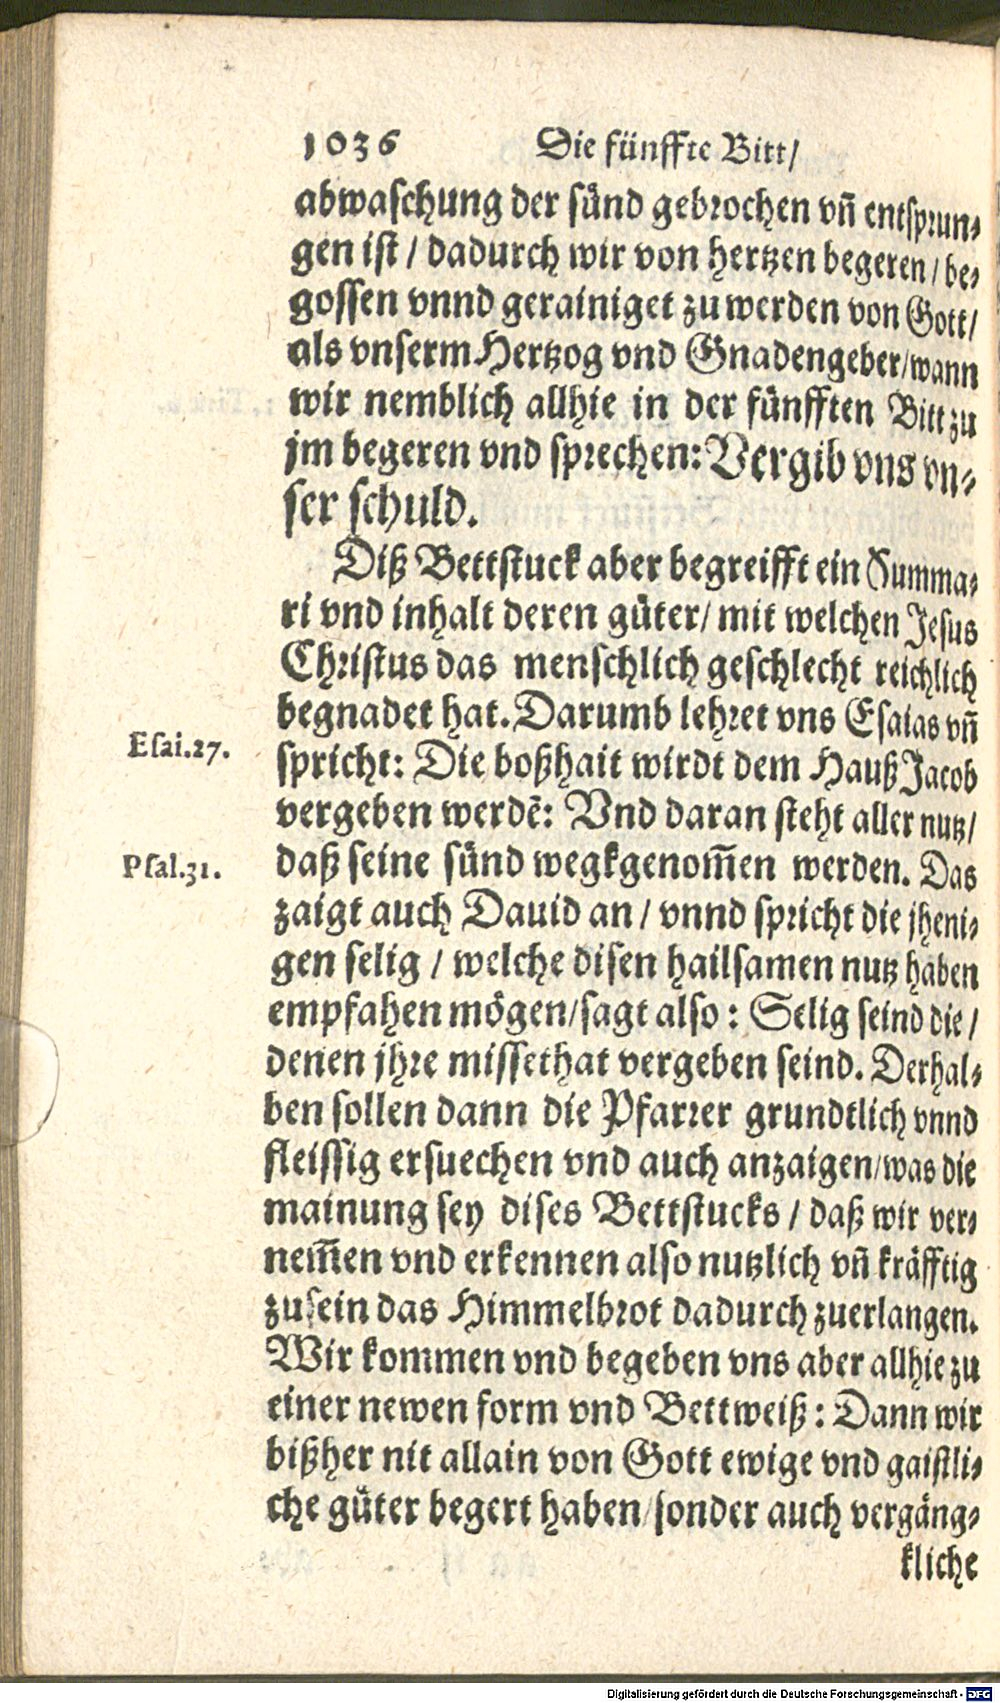 1036 Die fünffte Bitt/
abwaschung der sünd gebrochen vñ entsprun-
gen ist / dadurch wir von hertzen begeren / be-
gossen vnnd gerainiget zu werden von Gott/
als vnserm Hertzog vnd Gnadengeber/wann
wir nemblich allhie in der fünfften Bitt zu
jm begeren vnd sprechen: Vergib vns vn-
ser schuld.
Diß Bettstuck aber begreifft ein Summa-
ri vnd inhalt deren güter/ mit welchen Jesus
Christus das menschlich geschlecht reichlich
begnadet hat. Darumb lehret vns Esaias vñ
Esai.27.
spricht: Die boßhait wirdt dem Hauß Jacob
vergeben werdẽ: Vnd daran steht aller nutz/
Psal.31.
daß seine sünd wegkgenom̃en werden. Das
zaigt auch Dauid an / vnnd spricht die jheni-
gen selig / welche disen hailsamen nutz haben
empfahen mögen/sagt also : Selig seind die /
denen jhre missethat vergeben seind. Derhal-
ben sollen dann die Pfarrer grundtlich vnnd
fleissig ersuechen vnd auch anzaigen/was die
mainung sey dises Bettstucks / daß wir ver-
nem̃en vnd erkennen also nutzlich vñ kräfftig
zusein das Himmelbrot dadurch zuerlangen.
Wir kommen vnd begeben vns aber allhie zu
einer newen form vnd Bettweiß : Dann wir
bißher nit allain von Gott ewige vnd gaistli-
che güter begert haben/sonder auch vergäng-
kliche
Digitalisierung gefördert durch die Deutsche Forschungsgemeinschaft - DFG